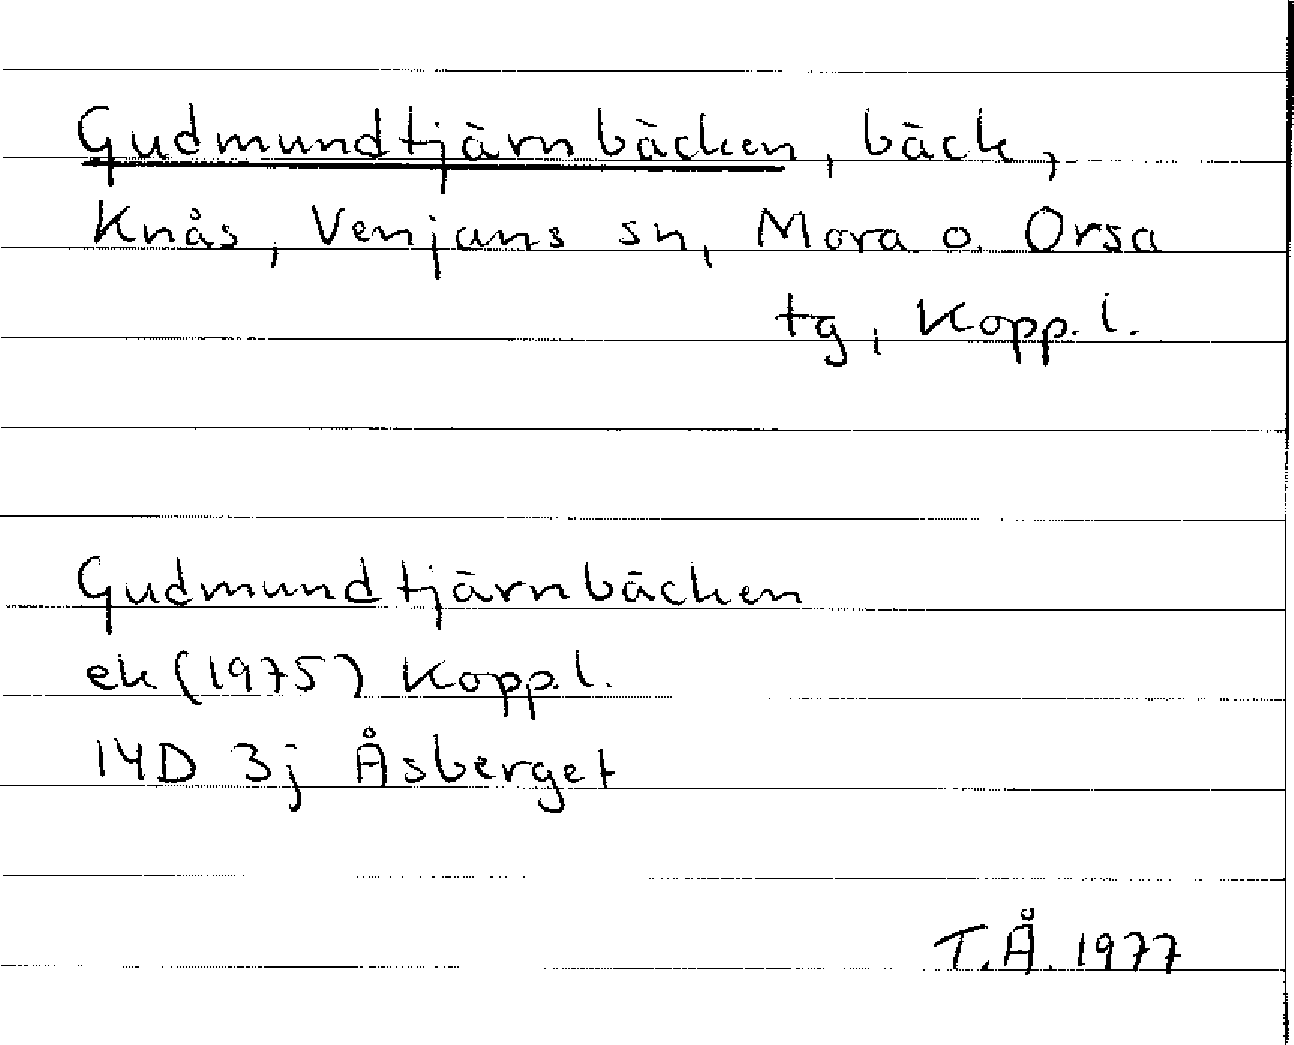 Gudmundtjärnbäcken, bäck,
Knås, Venjans sn, Mora o. Orsa
tg, Kopp. l.
Gudmundtjärnbäcken
ek (1975) Kopp. l.
14D 3j Åsberget
T.Å. 1977